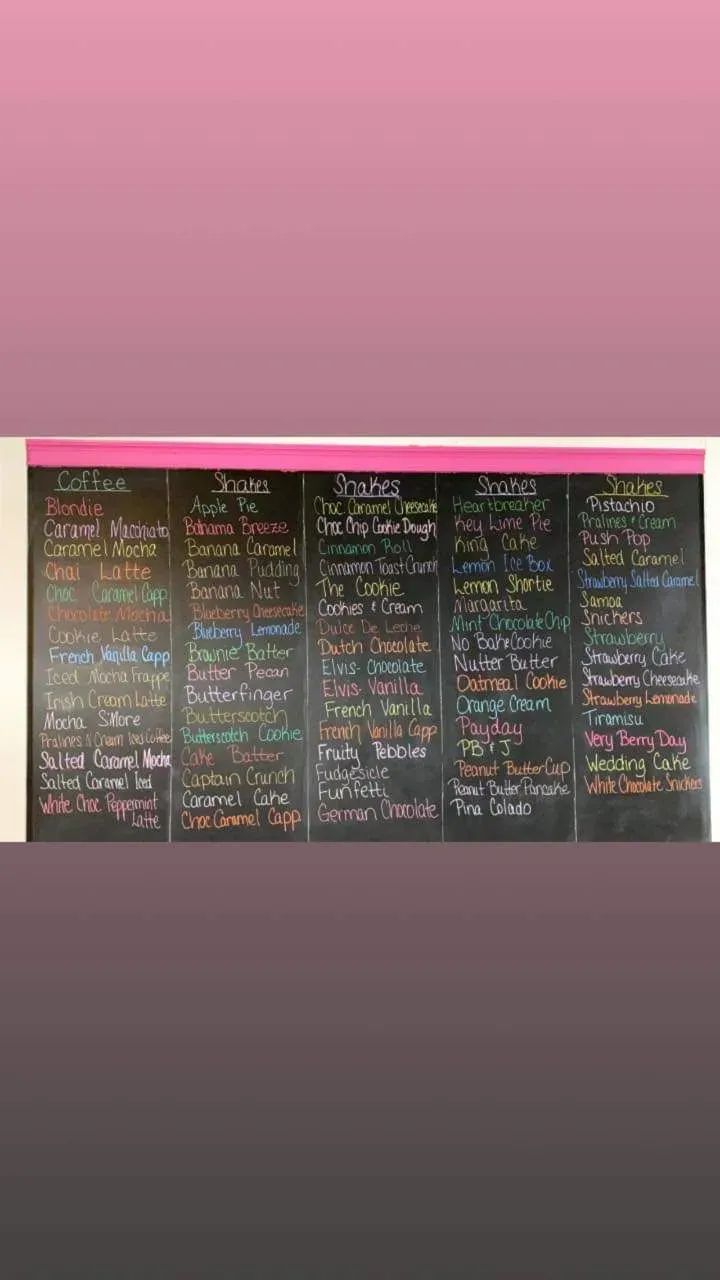 Coffee
Blondie
Caramel Macchiato
Caramel Mocha
Chai Latte
Choc Caramel Capp
Chocolate Mocha
Cookie Latte
French Vanilla Capp
Iced Mocha Frappe
Irish Cream Latte
Mocha S'More
Pralines & Cream Iced Coffee
Salted Caramel Mocha
Salted Caramel Iced
White Choc Peppermint
Latte
Shakes
Apple Pie
Bahama Breeze
Banana Caramel
Banana Pudding
Banana Nut
Blueberry Cheesecake
Blueberry Lemonade
Brownie Batter
Butter Pecan
Butterfinger
Butterscotch
Butterscotch Cookie
Cake Batter
Captain Crunch
Caramel Cake
Choc Caramel Capp
Shakes
Choc Caramel Cheesecake
Choc Chip Cookie Dough
Cinnamon Roll
Cinnamon Toast Crunch
The Cookie
Cookies & Cream
Dulce De Leche
Dutch Chocolate
Elvis- Chocolate
Elvis- Vanilla
French Vanilla
French Vanilla Capp
Fruity Pebbles
Fudgesicle
Funfetti
German Chocolate
Shakes
Heartbreaker
Key Lime Pie
King Cake
Lemon Ice Box
Lemon Shortie
Margarita
Mint Chocolate Chip
No Bake Cookie
Nutter Butter
Oatmeal Cookie
Orange Cream
Payday
PB & J
Peanut Butter Cup
Peanut Butter Pancake
Pina Colado
Shakes
Pistachio
Pralines & Cream
Push Pop
Salted Caramel
Strawberry Salted Caramel
Samoa
Snickers
Strawberry
Strawberry Cake
Strawberry Cheesecake
Strawberry Lemonade
Tiramisu
Very Berry Day
Wedding Cake
White Chocolate Snickers